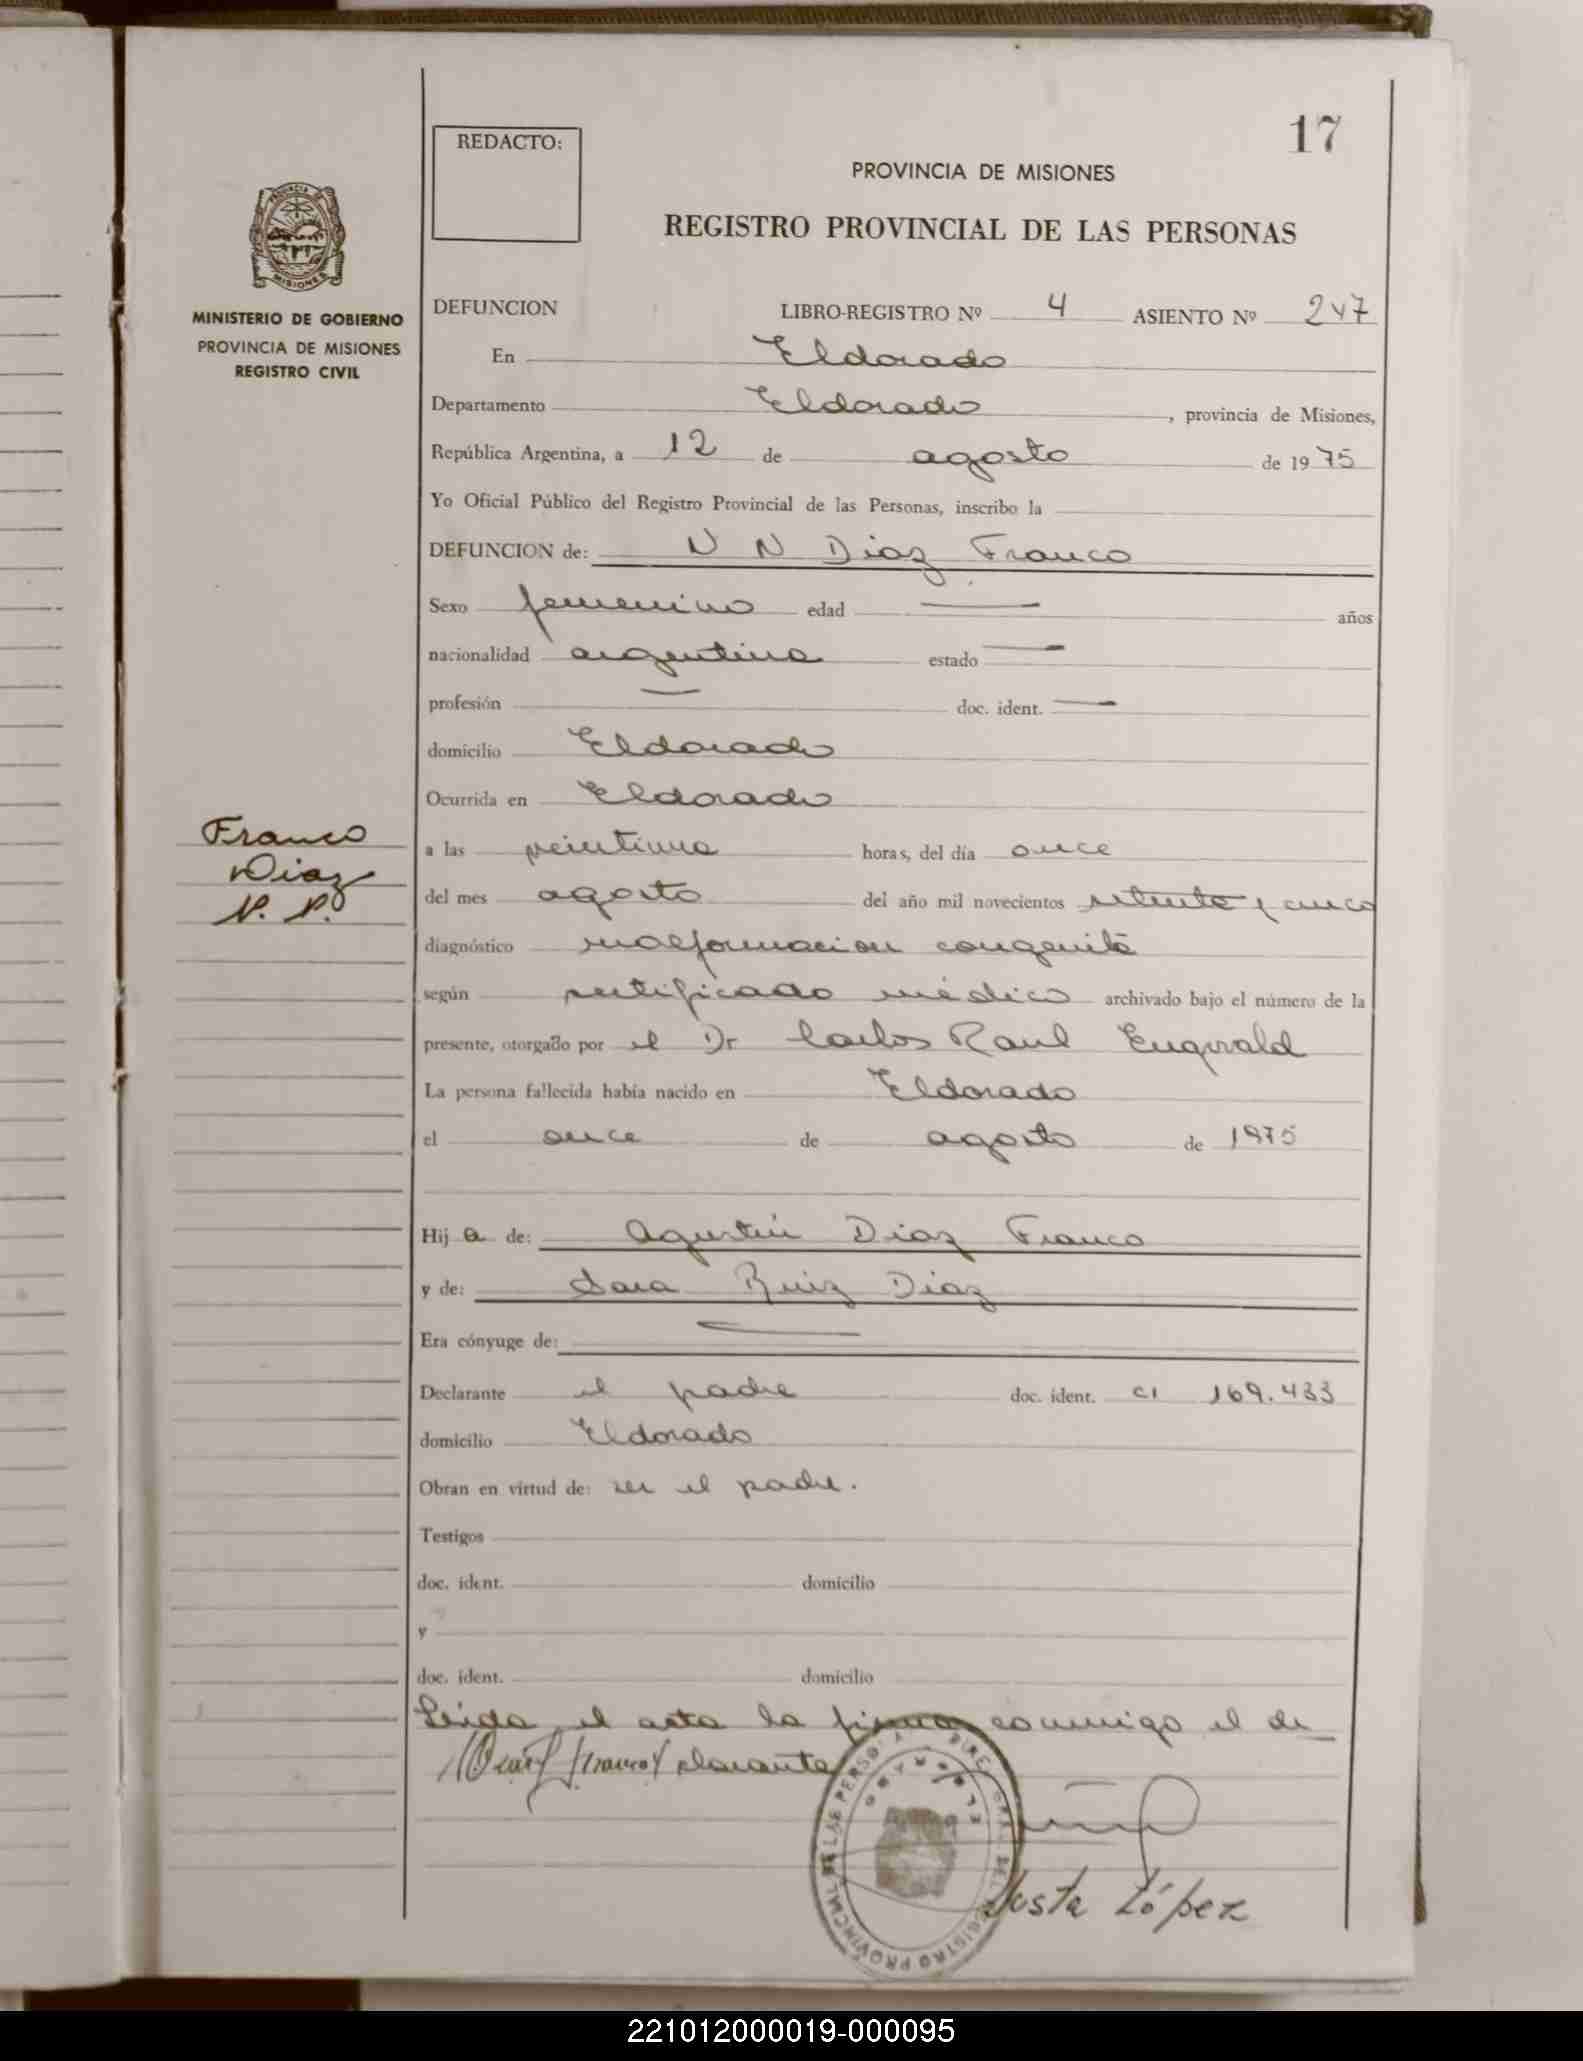 17
REDACTO:
PROVINCIA DE MISIONES
REGISTRO PROVINCIAL DE LAS PERSONAS
MINISTERIO DE GOBIERNO
PROVINCIA DE MISIONES
REGISTRO CIVIL
DEFUNCION LIBRO-REGISTRO Nº 4 ASIENTO Nº 247
En Eldorado
Departamento Eldorado, provincia de Misiones,
República Argentina, a 12 de agosto de 1975
Yo Oficial Público del Registro Provincial de las Personas, inscribo la
DEFUNCION de: N N Diaz Franco
Sexo femenino edad — años
nacionalidad argentina estado —
profesión — doc. ident. —
domicilio Eldorado
Ocurrida en Eldorado
Franco
Diaz
N. N.
a las veintiuna horas, del día once
del mes agosto del año mil novecientos setenta y cinco
diagnóstico malformacion congenita
según certificado médico archivado bajo el número de la
presente, otorgado por el Dr Carlos Raul
La persona fallecida había nacido en Eldorado
el once de agosto de 1975
Hija de: Agustin Diaz Franco
y de: Sara Ruiz Diaz
Era cónyuge de: —
Declarante el padre doc. ident. CI 169.433
domicilio Eldorado
Obran en virtud de: ser el padre.
Testigos
doc. ident. domicilio
y
doc. ident. domicilio
Leida el acta la firma conmigo el de
clarante
López
221012000019-000095